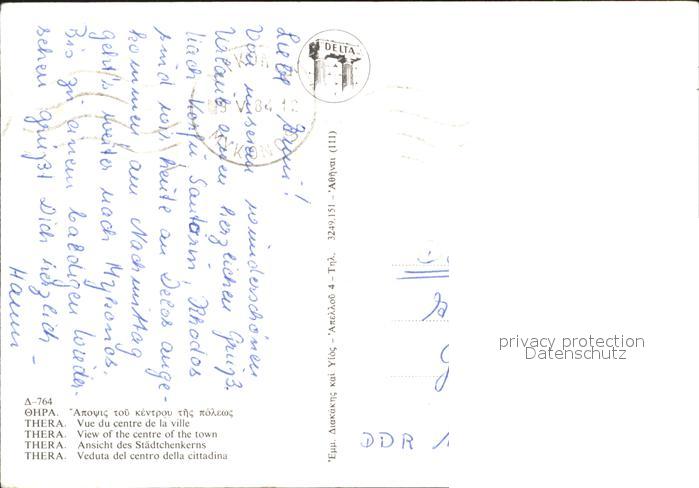 Von unserem wunderschönen
Urlaub einen herzlichen Gruß.
Nach Korfu, Santorin, Rhodos
sind wir heute an Delos ange-
kommen am Nachmittag
geht's weiter nach Mykonos.
Bis zu einem baldigen Wieder-
sehen grüßt Dich herzlich
Hanni -
DELTA
84 12
ΜΥΚΟΝΟΣ
Δ-764
ΘΗΡΑ. Ἄποψις τοῦ κέντρου τῆς πόλεως
THERA. Vue du centre de la ville
THERA. View of the centre of the town
THERA. Ansicht des Städtchenkerns
THERA. Veduta del centro della cittadina
Ἐμμ. Διακάκης καὶ Υἱὸς – Ἀπελλοῦ 4 – Τηλ. 3249.151 – Ἀθῆναι (111)
DDR
privacy protection
Datenschutz